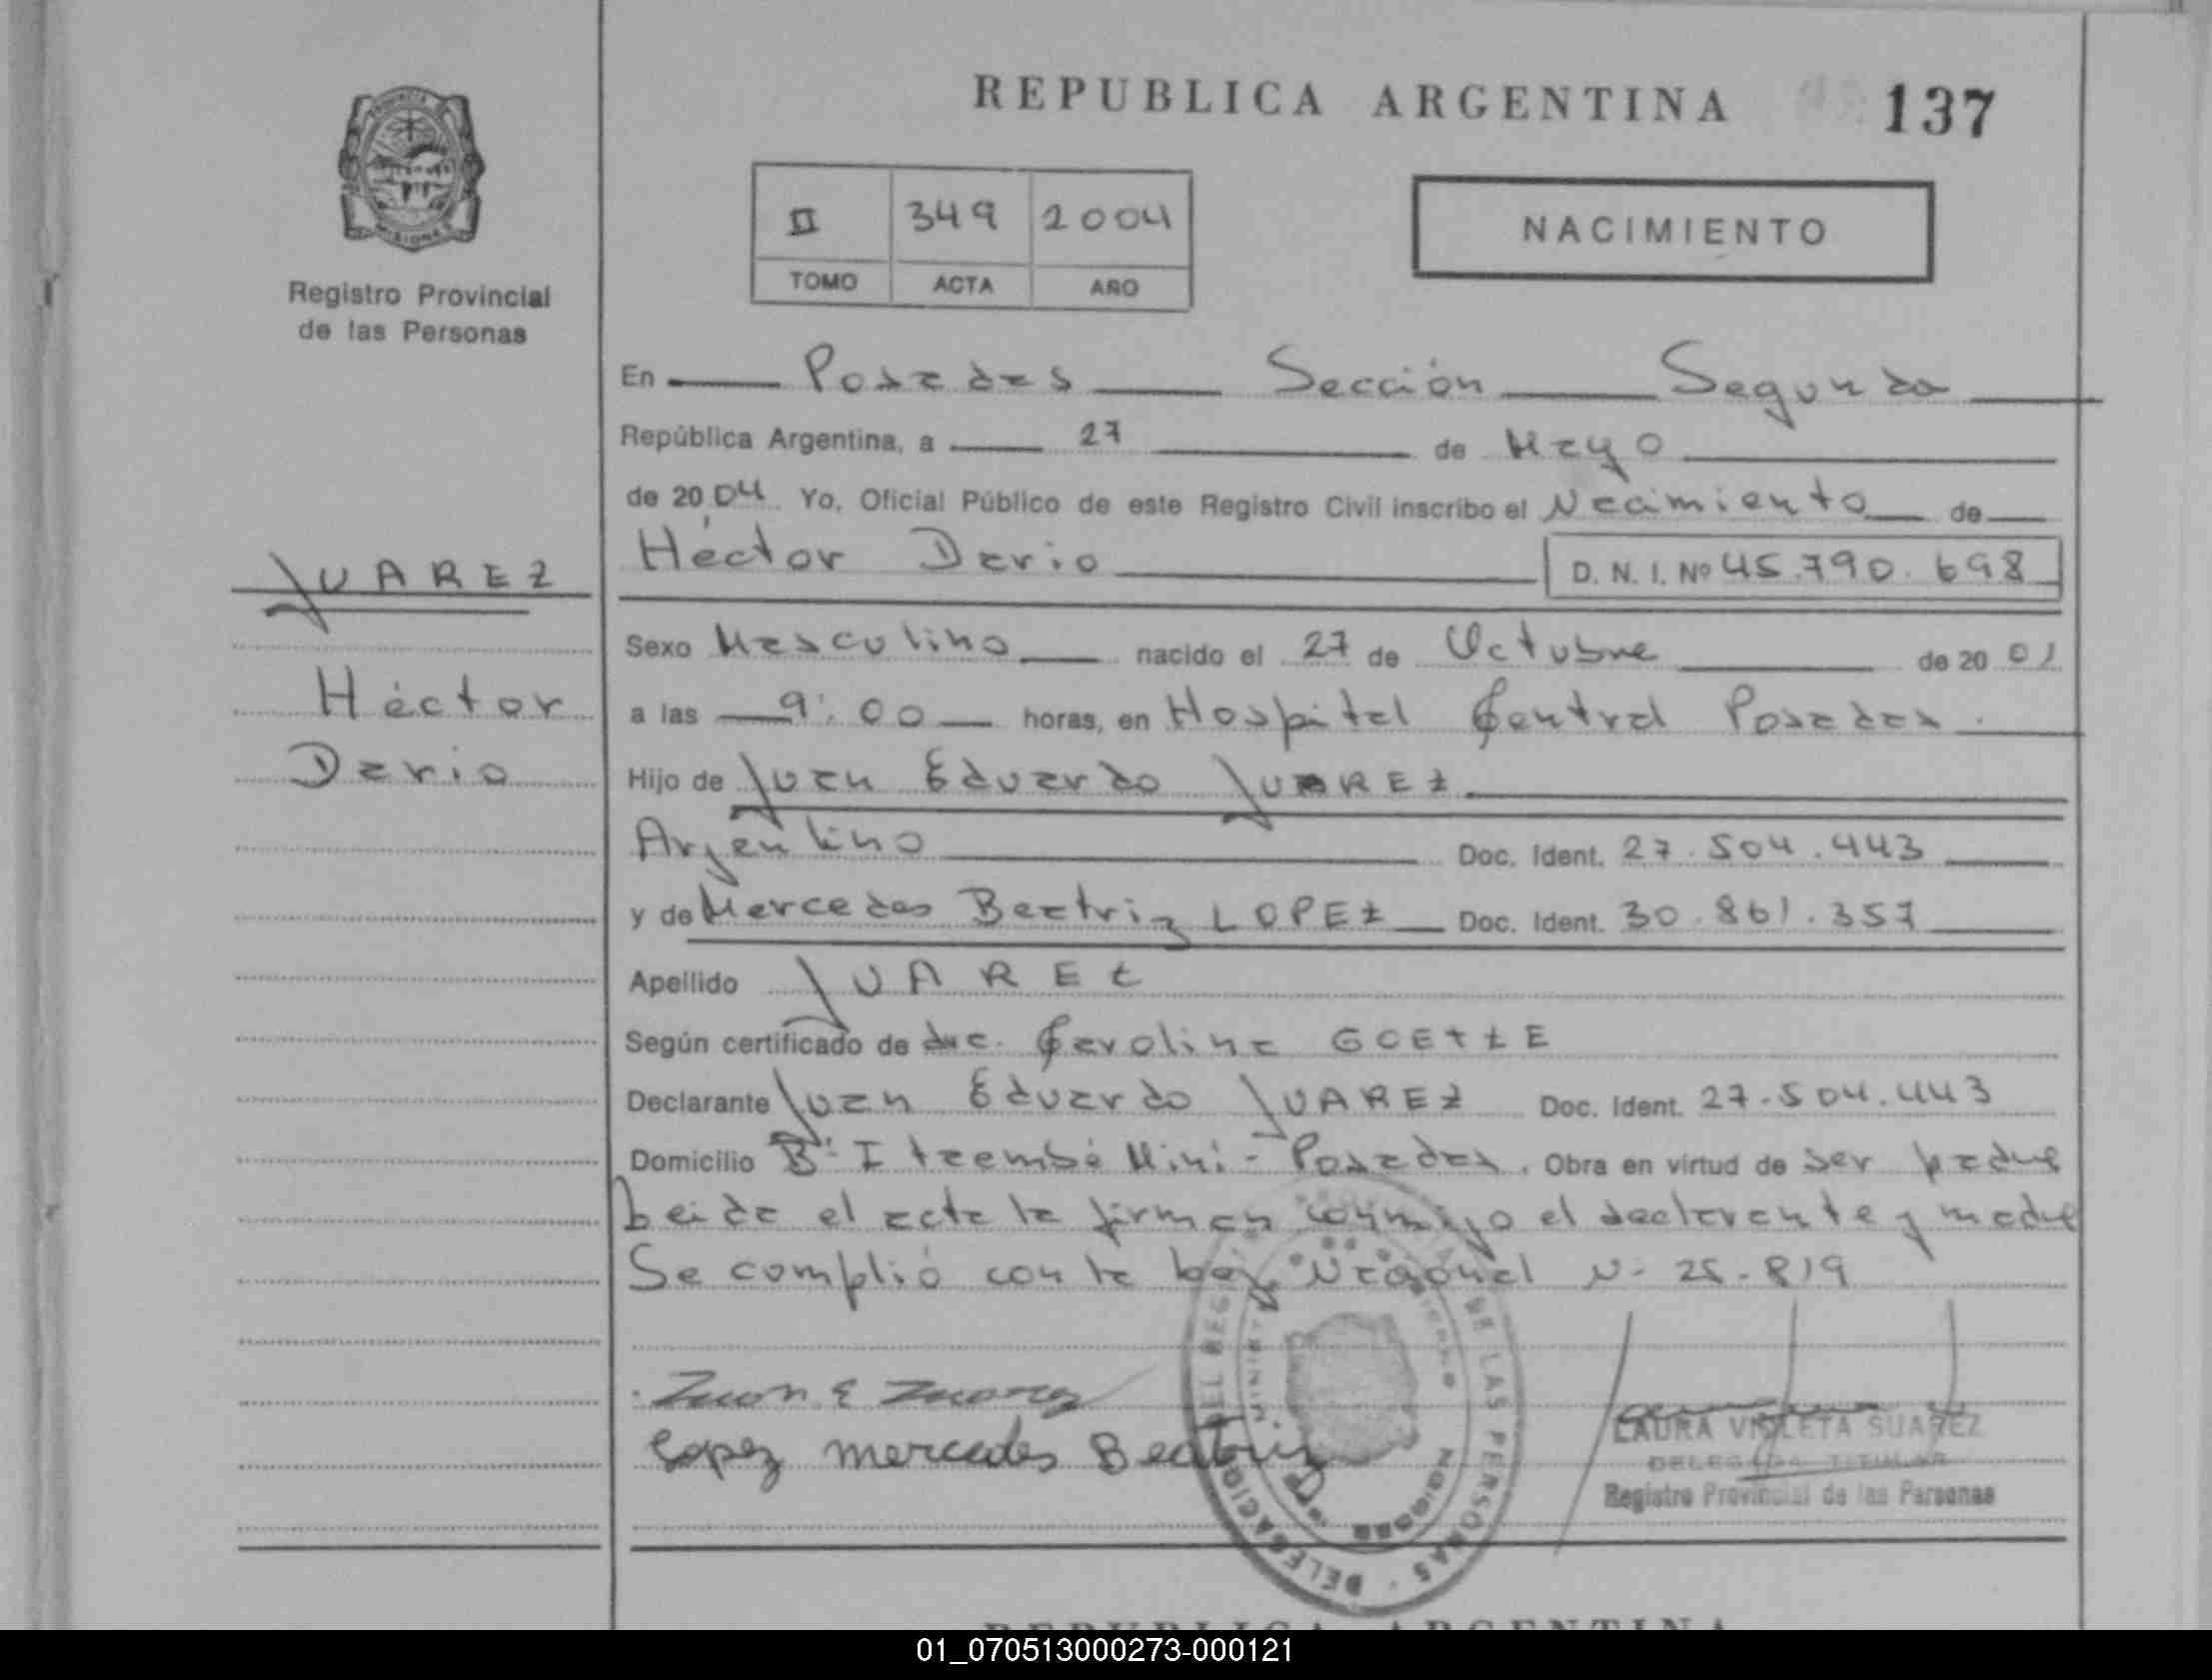 REPUBLICA ARGENTINA 137
PROVINCIA
MISIONES
Registro Provincial
de las Personas
II 349 2004
TOMO ACTA AÑO
NACIMIENTO
En Posadas Sección Segunda
República Argentina, a 27 de Mayo
de 2004 Yo, Oficial Público de este Registro Civil inscribo el Nacimiento de
JUAREZ
Héctor Dario D. N. I. Nº 45.790.698
Sexo Masculino nacido el 27 de Octubre de 2001
Héctor
a las 9:00 horas, en Hospital Central Posadas.
Dario
Hijo de Juan Eduardo JUAREZ
Argentino Doc. Ident. 27.504.443
y de Mercedes Beatriz LOPEZ Doc. Ident. 30.861.357
Apellido JUAREZ
Según certificado de Carolina GOETZE
Declarante Juan Eduardo JUAREZ Doc. Ident. 27.504.443
Domicilio Bº Itaembé Mini - Posadas. Obra en virtud de ser padre
Leida el acta la firman conmigo el declarante y madre
Se complió con la Ley Nacional Nº 25.819
Juan E Juarez
Lopez mercedes Beatriz
LAURA VIOLETA SUAREZ
DELEGADA TITULAR
Registro Provincial de las Personas
DELEGACION DEL REGISTRO DE LAS PERSONAS
REPUBLICA ARGENTINA
01_070513000273-000121